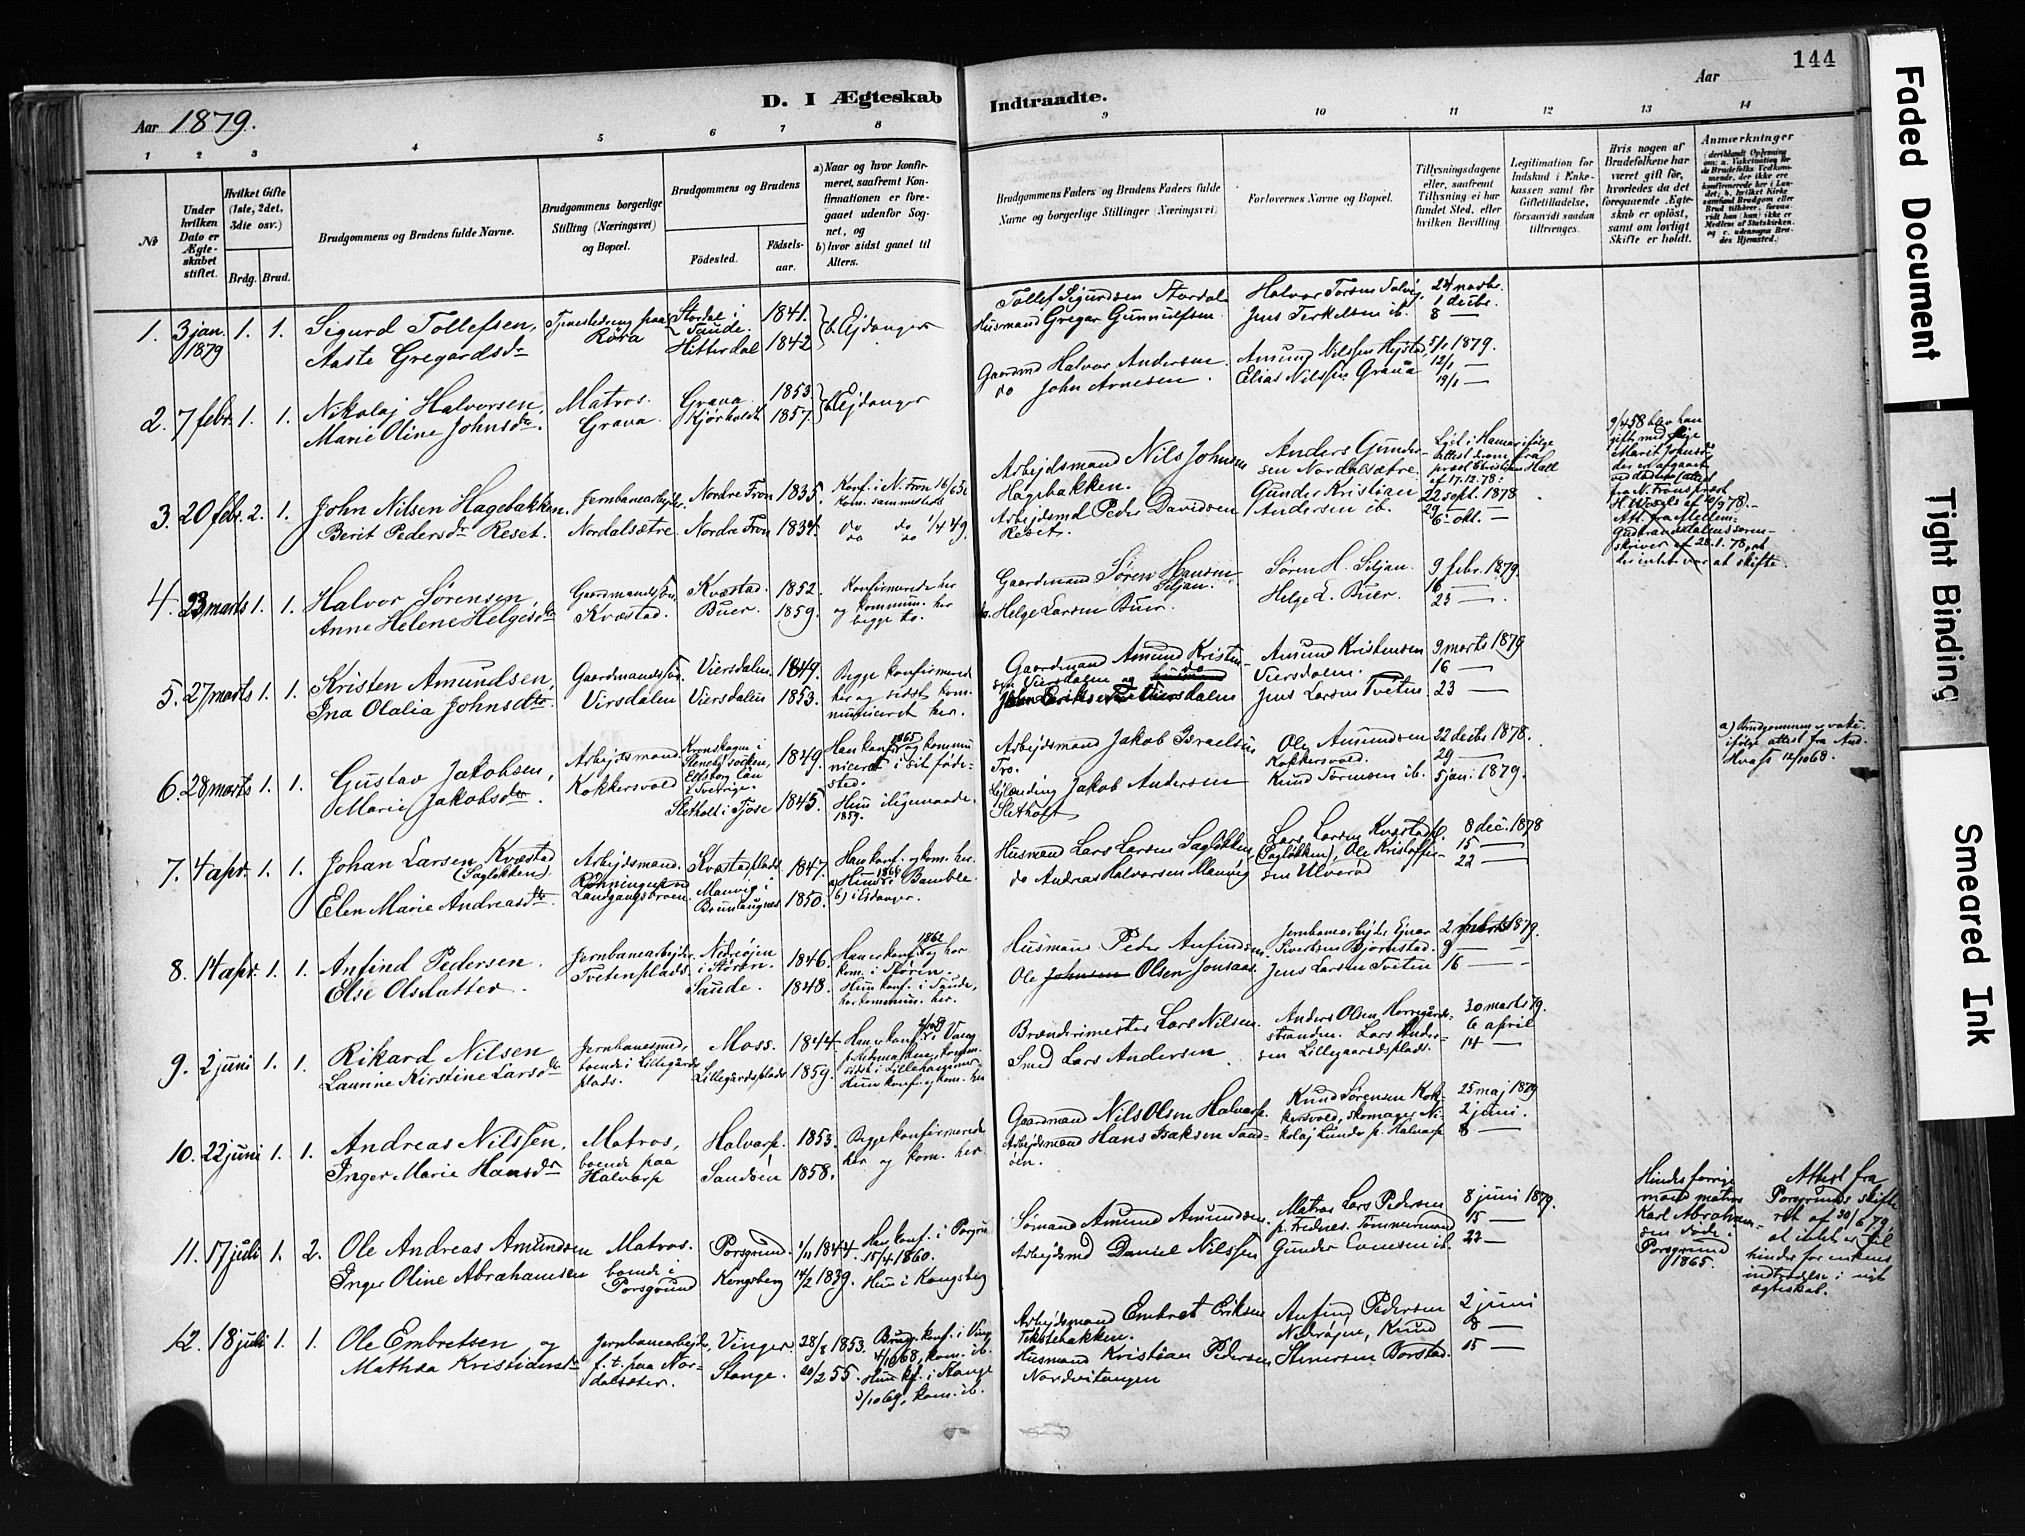 144
Aar 1879.
D. I Ægteskab Indtraadte.
Aar
1 2 3 4 5 6 7 8 9 10 11 12 13 14
№
Under hvilken Dato er Ægteskabet stiftet.
Hvilket Gifte (1ste, 2det, 3die osv.)
Brdg. Brud.
Brudgommens og Brudens fulde Navne.
Brudgommens borgerlige Stilling (Næringsvei) og Bopæl.
Brudgommens og Brudens
Födested.
Födsels-aar.
a) Naar og hvor konfirmeret, saafremt Konfirmationen er foregaaet udenfor Sognet, og
b) hvor sidst gaaet til Alters.
Brudgommens Faders og Brudens Faders fulde Navne og borgerlige Stillinger (Næringsvei)
Forlovernes Navne og Bopæl.
Tillysningsdagene eller, saafremt Tillysning ei har fundet Sted, efter hvilken Bevilling
Legitimation for Indskud i Enkekassen samt for Giftetilladelse, forsaavidt saadan tiltrænges.
Hvis nogen af Brudefolkene har været gift för, hvorledes da det foregaaende Ægteskab er oplöst, samt om lovligt Skifte er holdt.
Anmærkninger
1. 3 jan. 1879 1. 1.
Sigurd Tollefsen,
Aaste Gregardsdr
Tjenestedreng paa Röra
Stordal i Saude. 1841.
Hitterdal 1842
b. Ejdanger
Tollef Sigurdsen Stordal
Husmand Gregar Gunnulfsen.
Halvor Torsen
Jens Terkelsen ib.
24 novbr.
1 decbr.
8 —
2. 7 febr. 1. 1.
Nikolaj Halvorsen,
Marie Oline Johnsdr.
Matros.
Grava.
Grava. 1853.
Kjörholdt 1857.
b. Ejdanger
Gaardmd Halvor Andersen
do John Arnesen.
Amund Nilssen Hejstad,
Elias Nilssen Grava
5/1 1879.
12/1 —
19/1 —
3. 20 febr. 2. 1.
John Nilsen Hagebakken.
Berit Pedersdr Reset.
Jernbanearbejder
Nordalsætre.
Nordre Fron 1835.
Nordre Fron 1834.
Konf. i N. Fron
kom. sammesteds
do do
Arbejdsmand Nils Johnsen
Hagebakken.
Arbejdsmd Peder Davidsen
Reset.
Anders Gundersen Nordalsætre.
Gunder Kristian
Andersen ib.
af 17.12.78:
22 sept. 1878
29 —
6. okt. —
gift med
Marit Johnsdr
der er afgaaet
ved döden
4. 23 marts 1. 1.
Halvor Sörensen,
Anne Helene Helgesdtr
Gaardmandssön
Kvæstad.
Kvæstad. 1852.
Buer. 1859.
Konfirmerede her
og kommun. her
begge to.
Gaardmand Sören Hansen
Siljan.
do. Helge Larsen Buer.
Sören H. Siljan.
Helge L. Buer.
9 febr. 1879.
16 —
23 —
5. 27 marts 1. 1.
Kristen Amundsen,
Ina Olalia Johnsdtr
Gaardmandssön
Virsdalen
Viersdalen 1849.
Viersdalen 1853.
Begge konfirmerede
her og sidst kommuniceret her.
Gaardmand Amund Kristensen Viersdalen og do
John Eriksen Viersdalen
Amund Kristensen
Viersdalen.
Jens Larsen Tveten
9 marts 1879
16 —
23 —
6. 28 marts 1. 1.
Gustav Jakobsen,
Marie Jakobsdtr.
Arbejdsmand
Kokkersvold
Kronskogen i
Elfsborg Län
Sverrige. 1849.
Sletholt i Tjose 1845.
Han konf. 1865 og kommuniceret i sit födested.
Hun i ligemaade.
1859.
Arbejdsmand Jakob Israelsen
Tro.
Jakob Andersen
Sletholt
Ole Amundsen
Kokkersvold.
Knud Törensen ib.
22 decbr 1878.
29 —
5 jan. 1879.
a) Brudgommen er vakc.
ifölge attest fra
12/10 68.
7. 4 apr. 1. 1.
Johan Larsen Kvæstad
(Saglökken)
Elen Marie Andreasdtr.
Arbejdsmand.
Landgangsbroen.
Kvæstadplads 1847.
Manvig i
Brunlaugnes 1850.
Han konf. og kom. her.
a) Hun 1866 i Bamble
b) i Eidanger.
Husmand Lars Larsen Saglökken
do Andreas Halvorsen Manvig
Lars Larsen Kvæstad
(Saglökken), Ole Kristoffersen Ulverød
8 dec. 1878
15 —
22 —
8. 14 apr. 1. 1.
Anfind Pedersen.
Else Olsdatter.
Jernbanearbejder
Tvetenplads
Nedreöjen
i Stören. 1846.
Saude. 1848.
Han er konf. 1862 og
kom. i Stören.
Hun konf. i Saude,
har kommun. her.
Husmand Peder Anfindsen.
Ole Olsen Jonsaas
Jernbanearbejder Ejnar
Sivertsen Björnstad.
Jens Larsen Tveten
2 marts 1879.
9 —
16 —
9. 2 juni 1. 1.
Rikard Nilsen
Laurine Kirstine Larsdtr
Jernbanesmed,
boende i Lillegårds
plads.
Moss. 1844
Lillegårdsplads 1859.
Han er konf.
sidst i Lillehammer
Hun konf. og kom. her
Brænderimester Lars Nilsen.
Smed Lars Andersen.
Anders Olsen
stranden. Lars Andersen Lillegaardsplads.
30 marts 79.
6 april
14 —
10. 22 juni 1. 1.
Andreas Nilssen,
Inger Marie Hansdr
Matros,
boende paa
Halvarp
Halvarp. 1853.
Sandöen 1858.
Begge konfirmerede
her og kom. her.
Gaardmand Nils Olsen Halvarp.
Arbejdsmand Hans Isaksen Sandöen.
Knud Sörensen Kokkersvold, skomager Nikolaj Lunde p. Halvarp
25 maj 1879
2 juni.
8 —
11. 17 juli 1. 2.
Ole Andreas Amundsen
Inger Oline Abrahamsen
Matros.
boende i
Porsgrund
Porsgrund. 1/11 1844.
Kongsberg 14/2 1839.
Han konf. i Porsgru
15/4 1860.
Hun i Kongsberg
Sömand Amund Amundsen.
Arbejdsmd Daniel Nilssen
Matros Lars Pedersen
p. Frednes. Tömmermand
Gunder Evensen ib.
8 juni 1879.
15 —
22 —
Hindes forrige
mand matros
Karl Abrahamsen döde i
Porsgrund
1865.
Attest fra
Porsgrunds skifteret af 30/6 79,
at intet er til
hinder for enkens
indtrædelse i nyt
ægteskab.
12. 18 juli 1. 1.
Ole Embretsen og
Mathea Kristiansdr
Jernbanearbejder,
f. t. paa Nordalsæter.
Vinger. 28/8 1853.
Stange. 20/2 55.
Brudg. konf. i Vinger
4/10 68, kom. ib.
Hun kf. i Stange
3/10 69, kom. ib.
Arbejdsmand Embret Eriksen
Husmand Kristian Pedersen
Nordvitangen
Anfind Pedersen
Nedreöjen, Knud
Stenersen Borstad.
2 juni
8 —
15 —
Faded Document
Tight Binding
Smeared Ink